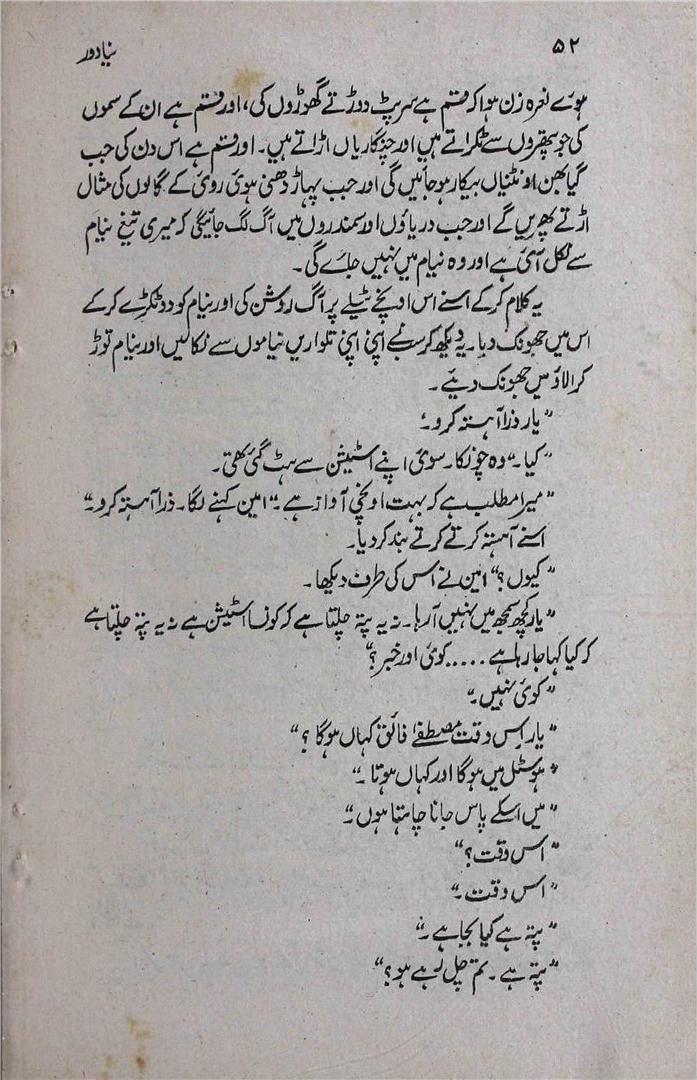 ۵۲
نیا دور
ہوئے نعرہ زن ہوا کہ قسم ہے سرپٹ دوڑتے گھوڑوں کی، اور قسم ہے ان کے سموں
کی جو پتھروں سے ٹکراتے ہیں اور چنگاریاں اڑاتے ہیں۔ اور قسم ہے اس دن کی جب
گیابھن اونٹنیاں بیکار ہو جائیں گی اور جب پہاڑ دھنی ہوئی روئی کے گالوں کی مثال
اڑتے پھریں گے اور جب دریاؤں اور سمندروں میں آگ لگ جائیگی کہ میری تیغ نیام
سے نکل آئی ہے اور وہ نیام میں نہیں جائے گی۔
یہ کلام کرکے اسنے اس اونچے ٹیلے پر آگ روشن کی اور نیام کو دو ٹکڑے کرکے
اس میں جھونک دیا۔ یہ دیکھ کر سب نے اپنی اپنی تلواریں نیاموں سے نکالیں اور نیام توڑ
کر الاؤ میں جھونک دیئے۔
"یار ذرا آہستہ کرو۔"
"کیا۔" وہ چونکا۔ سوئی اپنے اسٹیشن سے ہٹ گئی تھی۔
"میرا مطلب ہے کہ بہت اونچی آواز ہے۔" امین کہنے لگا۔ ذرا آہستہ کرو۔"
اسنے آہستہ کرتے کرتے بند کر دیا۔
"کیوں؟" امین نے اس کی طرف دیکھا۔
"یار کچھ سمجھ میں نہیں آ رہا۔ نہ یہ پتہ چلتا ہے کہ کونسا اسٹیشن ہے نہ یہ پتہ چلتا ہے
کہ کیا کہا جا رہا ہے ..... کوئی اور خبر؟"
"کوئی نہیں۔"
"یار اس وقت مصطفےٰ فائق کہاں ہوگا؟"
"ہوسٹل میں ہوگا اور کہاں ہوتا۔"
"میں اسکے پاس جانا چاہتا ہوں۔"
"اس وقت؟"
"اس وقت۔"
"پتہ ہے کیا بجا ہے۔"
"پتہ ہے۔ تم چل رہے ہو؟"